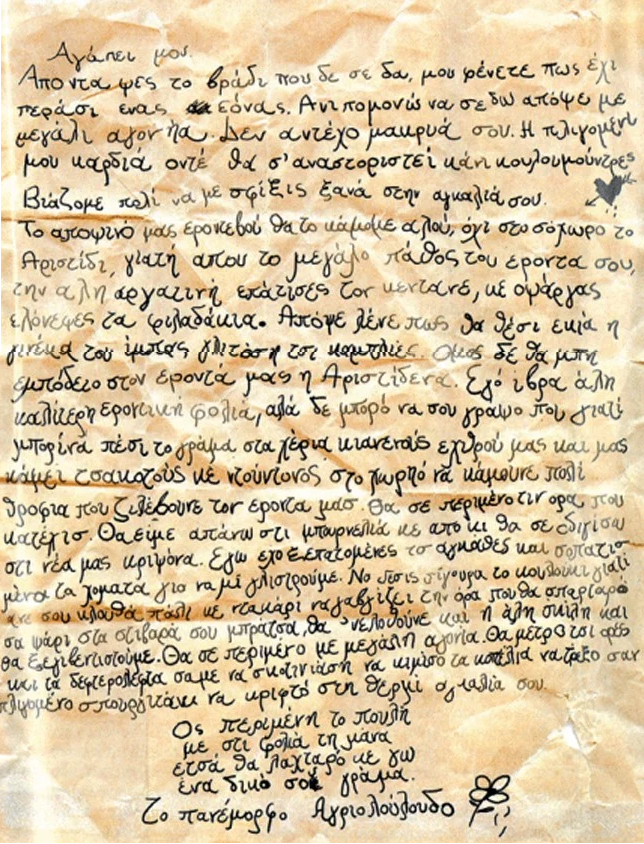 Αγάπει μου.
Απο ντα ψες το βράδι που δε σε δα, μου φένετε πως έχι
περάσι ενας εόνας. Ανιπομονώ να σε δω απόψε με
μεγάλι αγονήα. Δεν αντέχο μακρυά σου. Η πλιγομένι
μου καρδιά οντέ θα σ'αναστοριστεί κάνι κουλουμούντρες
Βιάζομε πολί να με σφίξις ξανά στην αγκαλιά σου.
Το αποψινό μας εροντεβού θα το κάμομε αλού, όχι στο σόχωρο το
Αριστίδι, γιατή απου το μεγάλο πάθος του εροντα σου,
την αλη αργατινή επάτισες τον μεντανε, κε οψάργας
ελόνεψες τα φιλαδάκια. Απόψε λένε πως θα θέσι εκιά η
γινέκα του ίμπας γλιτόση τσι κομπλιές. Ομος δε θα μπη
εμπόδειο στον εροντά μας η Αριστίδενα. Εγό ίβρα άλη
καλίτερη εροντική φολιά, αλά δε μπορό να σου γραψο που γιατί
μπορίνα πέσι το γράμα στα χέρια κιανενούς εχθρού μας και μας
κάμει τσακοτούς κε ντουντονος στο χωριό να κάμουνε πολί
θροφια που ζιλέβουνε τον εροντα μας. Θα σε περιμένο τιν ορα που
κατέχισ. Θα είμε απάνω στι μπαρνελιά κε από κι θα σε οδιγίσω
στι νέα μας κριψόνα. Εγω εχο ξεπατομένες τσ αγκάθες και σοπατισ-
μένα τα χοματα για να μι γλιστρούμε. Νο πσις σίγουρα το κουλούκι γιατί
ανε σου κλουθά πάλι κε ντακάρι να γαβγίζει την όρα που θα σπαρταρό
σα ψάρι στα στιβαρά σου μπράτσα, θα νελουθούνε και η άλη σκίλη και
θα ξεγιβεντιστούμε. Θα σε περιμένο με μεγάλη αγονία. Θα μετρό τσι ορες
και τα δεφτερολεφτα σαμε να σκοτινιάση να κιμίσο τα κοπέλια να τρέξο σαν
πλιγομένο σπουργιτάκι να κριφτό στη θερμί αγκαλιά σου.
Ος περιμένη το πουλή
με στι φολιά τη μάνα
ετσά θα λαχταρό κε γω
ένα δικό σου γράμα.
Το πανέμορφο Αγριολούλουδο